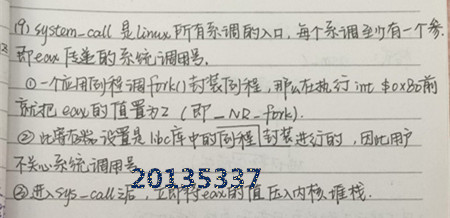 (9) system_call 是linux所有系调的入口,每个系调至少有一个参.
即eax传递的系统调用号.
①一个应用例程调fork()封装例程,那么在执行int $0x80前
就把eax的值置为2(即_NR_fork).
②此寄存器设置是libc库中的例程封装进行的,因此用户
不关心系统调用号
③进入sys_call之后,立即将eax的值压入内核堆栈.
20135337